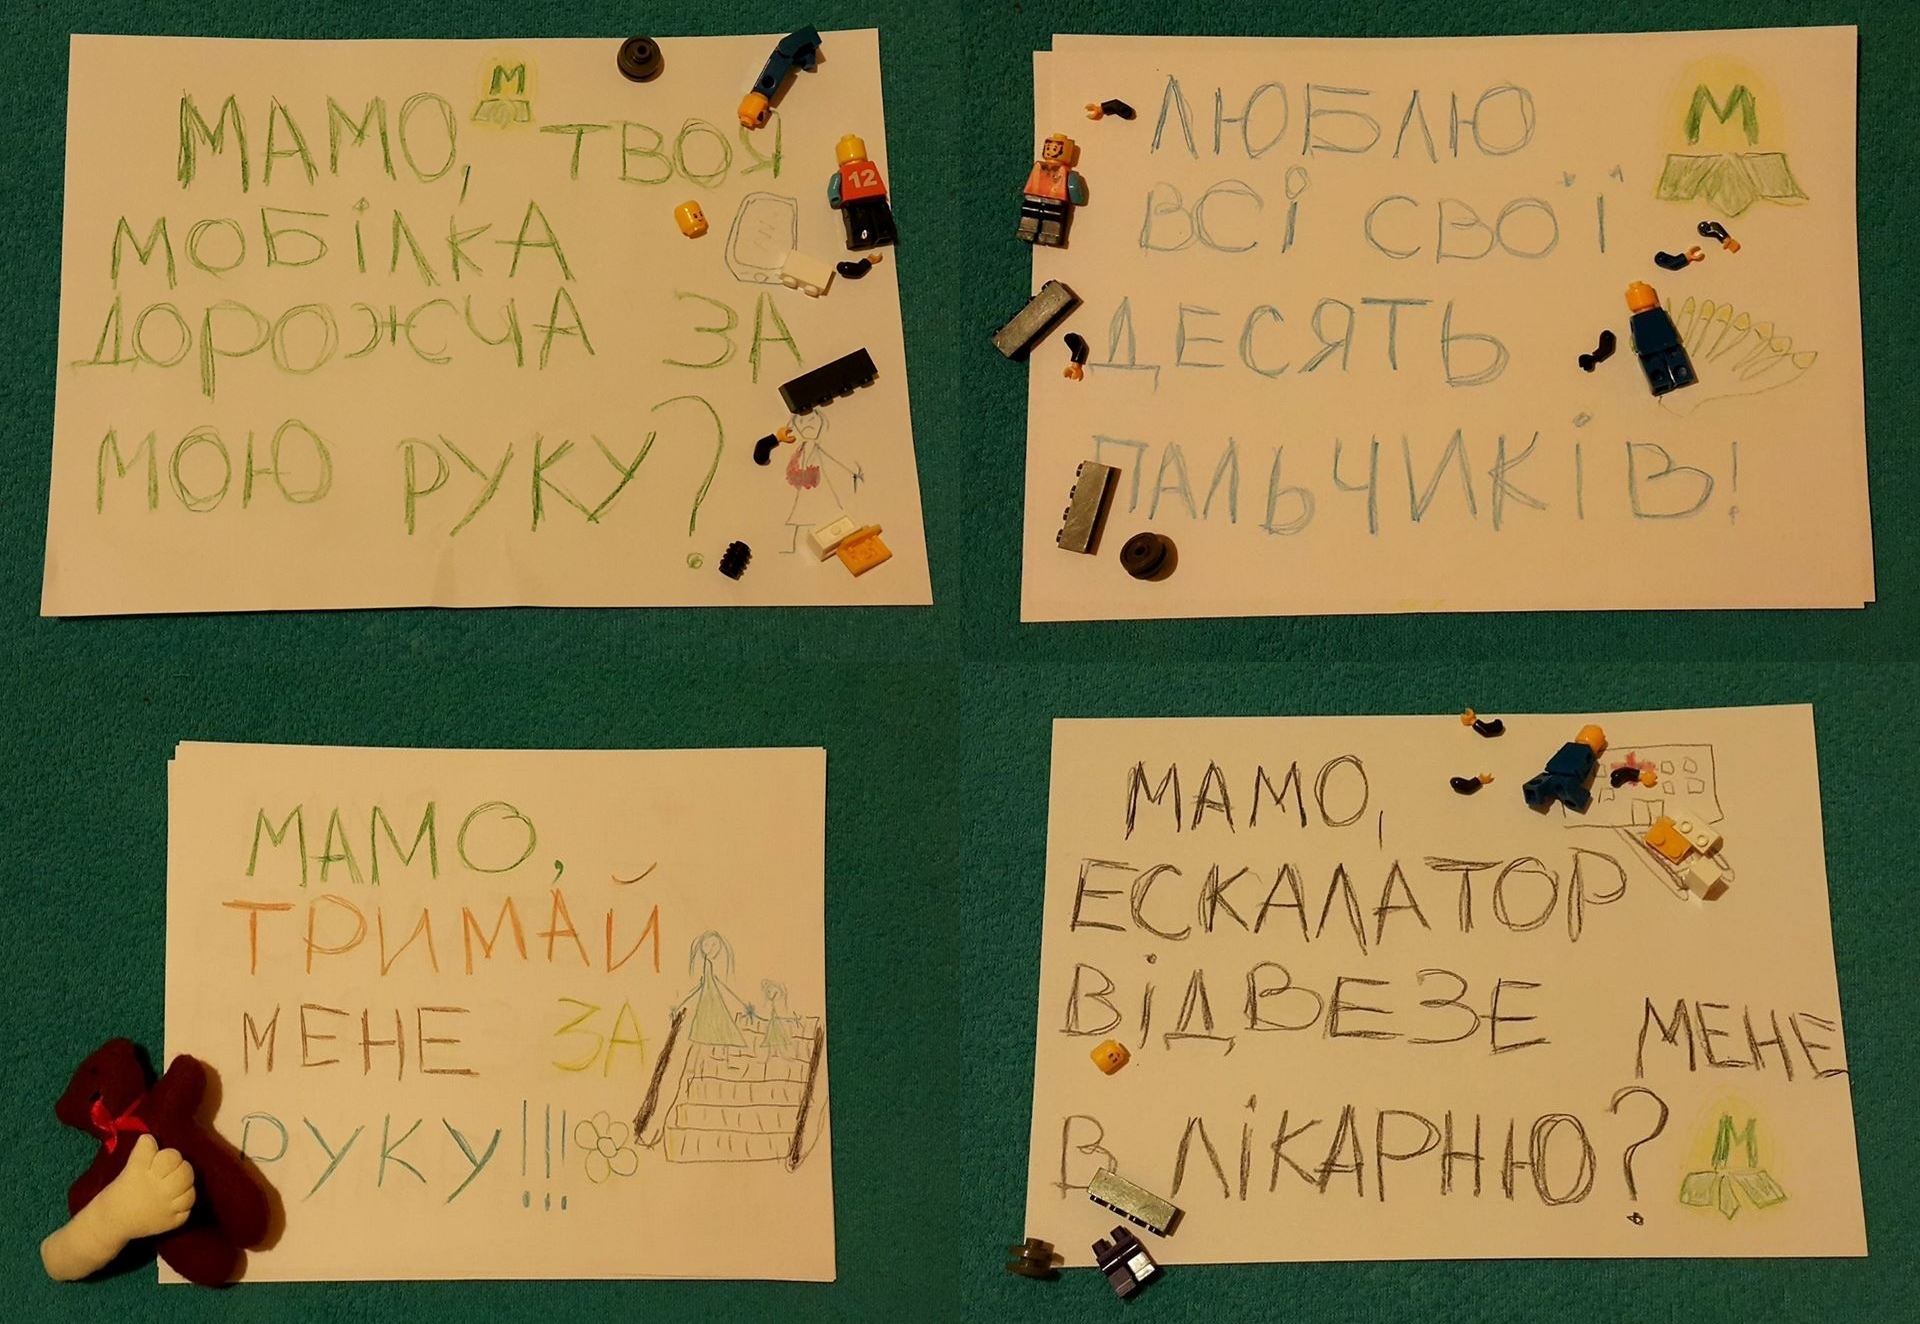 М
МАМО, ТВОЯ
12
МОБІЛКА
ДОРОЖЧА ЗА
МОЮ РУКУ?
ЛЮБЛЮ
М
ВСІ СВОЇ
ДЕСЯТЬ
ПАЛЬЧИКІВ!
МАМО,
ТРИМАЙ
МЕНЕ ЗА
РУКУ!!!
МАМО,
ЕСКАЛАТОР
ВІДВЕЗЕ
МЕНЕ
В ЛІКАРНЮ?
М